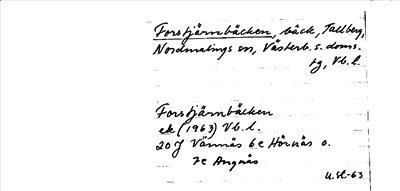 Forstjärnbäcken, bäck, Tallberg,
Nordmalings sn, Västerb. s. doms.
tg, Vb. l.
Forstjärnbäcken
ek (1963) Vb. l.
20 J Vännäs 6 e Hörnäs o.
7 e Angnäs
U. St-63